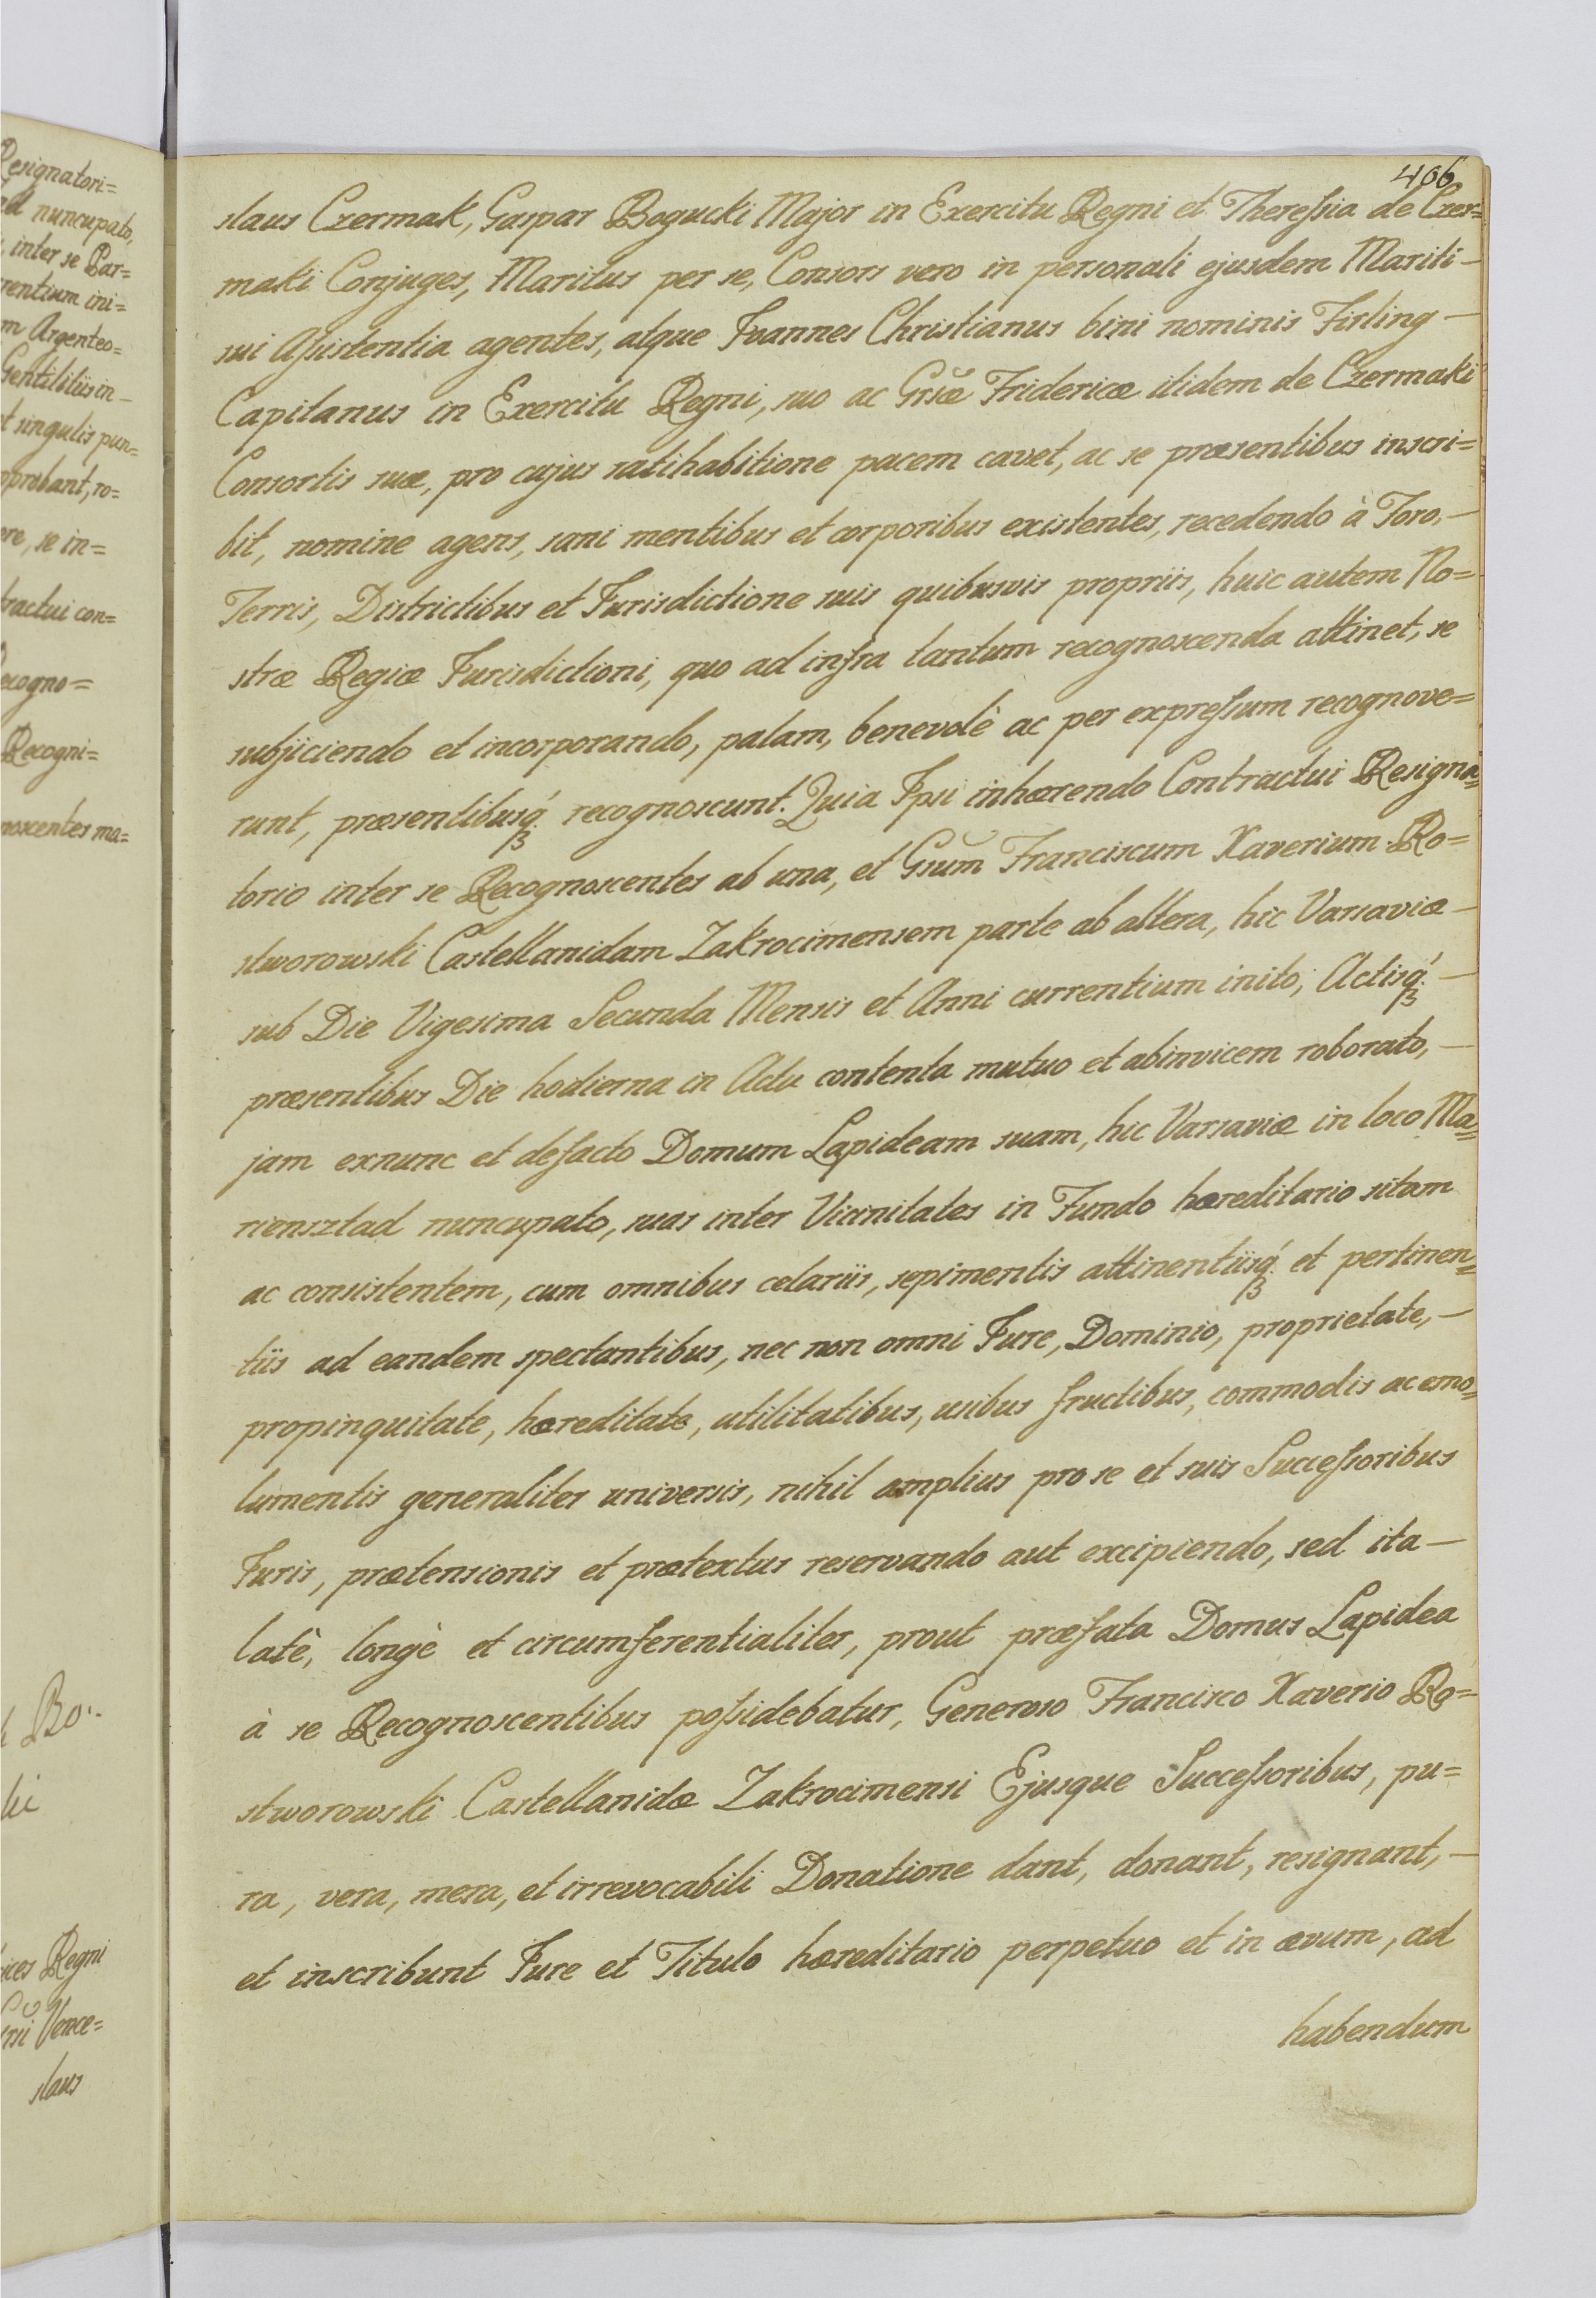 Resignatori=
nuncupato,
inter se Par=
rentium ini=
m Argenteo=
Gentilitiis in-
et singulis pun=
pprobant, ro=
ere, se in=
tractui con=
ecogno=
Recogni=
noscentes ma=
Bo:
ki
ices Regni
Vence=
slaus
406
slaus Czermak, Gaspar Bogucki Major in Exercitu Regni et Theressia de Czer=
maki Conjuges, Maritus per se, Consors vero in personali ejusdem Mariti-
sui Assistentia agentes, atque Ioannes Christianus bini nominis Firling-
Capitanus in Exercitu Regni, suo ac Grsæ Fridericæ itidem de Czermaki
Consortis suæ, pro cujus ratihabitione pacem cavet, ac se præsentibus inscri=
bit, nomine agens, sani mentibus et corporibus existentes, recedendo à Foro,-
Terris, Districtibus et Iurisdictione suis quibusvis propriis, huic autem No=
stræ Regiæ Iurisdictioni, quo ad infra tantum recognoscenda attinet, se
subjiciendo et incorporando, palam, benevolè ac per expressum recognove=
runt, præsentibusq́ recognoscunt. Quia Ipsi inhærendo Contractui Resigna=
torio inter se Recognoscentes ab una, et Gsum Franciscum Xaverium Ro=
stworowski Castellanidam Zakrocimensem parte ab altera, hic Varsaviæ-
sub Die Vigesima Secunda Mensis et Anni currentium inito, Actisq́-
præsentibus Die hodierna in Actu contenta mutuo et abinvicem roborato,-
jam exnunc et defacto Domum Lapideam suam, hic Varsaviæ in loco Ma=
riensztad nuncupato, suas inter Vicinitates in Fundo hæreditario sitam
ac consistentem, cum omnibus celariis, sepimentis attinentiisq́ et pertinen=
tiis ad eandem spectantibus, nec non omni Iure, Dominio, proprietate,-
propinquitate, hæreditate, utilitatibus, usibus fructibus, commodis ac emo=
lumentis generaliter universis, nihil amplius pro se et suis Successoribus
Iuris, prætensionis et prætextus reservando aut excipiendo, sed ita-
latè, longè et circumferentialiter, prout præfata Domus Lapidea
à se Recognoscentibus possidebatur, Generoso Francisco Xaverio Ro=
stworowski Castellanidæ Zakrocimensi Ejusque Successoribus, pu=
ra, vera, mera, et irrevocabili Donatione dant, donant, resignant,-
et inscribunt Iure et Titulo hæreditario perpetuo et in ævum, ad
habendum